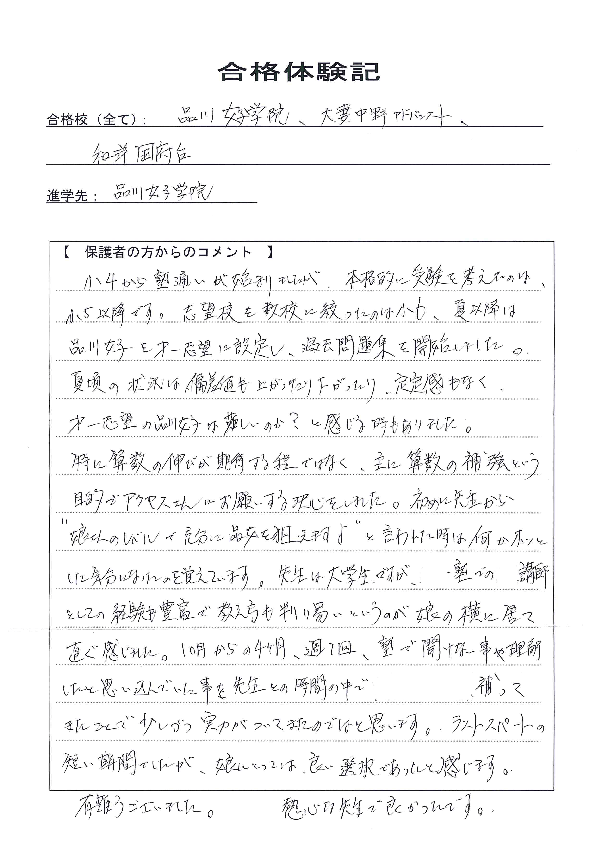 合格体験記
合格校（全て）: 品川女子学院、大妻中野アドバンスト、
和洋国府台
進学先： 品川女子学院
【 保護者の方からのコメント 】
小4から塾通いが始まりましたが、本格的に受験を考えたのは、
小5以降です。志望校を数校に絞ったのは小6、夏以降は
品川女子を第一志望に設定し、過去問題集を開始しました。
夏頃の状況は偏差値も上がったり下がったり、安定感もなく、
第一志望の品川女子は難しいのか？と感じる時もありました。
特に算数の伸びが期待する程ではなく、主に算数の補強という
目的でアクセスさんにお願いする決心をしました。初めに先生から
"娘さんのレベルで充分に品女を狙えますよ"と言われた時は何かホッと
した気分になれたのを覚えています。先生は大学生ですが、 塾での 講師
としての経験も豊富で教え方も判り易いというのが娘の横に居て
直ぐ感じれた。10月からの4ヶ月、週1回、塾で聞けない事や理解
したと思い込んでいた事を先生との時間の中で 補って
きたことで少しずつ実力がついてきたのではと思います。ラストスパートの
短い期間でしたが、娘にとっては良い選択であったと感じます。
有難うございました。 熱心な先生で良かったです。